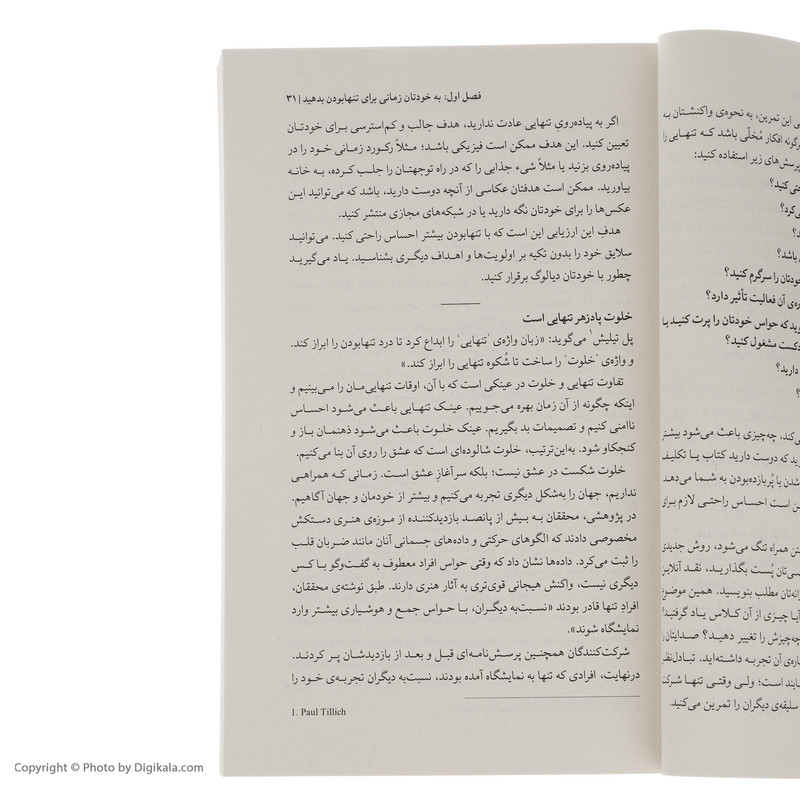 فصل اول: به خودتان زمانی برای تنهابودن بدهید | ۳۱
اگر به پیاده‌رویِ تنهایی عادت ندارید، هدف جالب و کم‌استرسی برای خودتان
تعیین کنید. این هدف ممکن است فیزیکی باشد؛ مثلاً رکورد زمانی خود را در
پیاده‌روی بزنید یا مثلاً شیء جذابی را که در راه توجهتان را جلب کرده، به خانه
بیاورید. ممکن است هدفتان عکاسی از آنچه دوست دارید، باشد که می‌توانید این
عکس‌ها را برای خودتان نگه دارید یا در شبکه‌های مجازی منتشر کنید.
هدفِ این ارزیابی این است که با تنهابودن بیشتر احساس راحتی کنید. می‌توانید
سلایق خود را بدون تکیه بر اولویت‌ها و اهداف دیگری بشناسید. یاد می‌گیرید
چطور با خودتان دیالوگ برقرار کنید.
خلوت پادزهر تنهایی است
پل تیلیش۱ می‌گوید: «زبان واژه‌ی 'تنهایی' را ابداع کرد تا درد تنهابودن را ابراز کند.
و واژه‌ی 'خلوت' را ساخت تا شُکوه تنهایی را ابراز کند.»
تفاوت تنهایی و خلوت در عینکی است که با آن، اوقات تنهایی‌مان را می‌بینیم و
اینکه چگونه از آن زمان بهره می‌جوییم. عینک تنهایی باعث می‌شود احساس
ناامنی کنیم و تصمیمات بد بگیریم. عینک خلوت باعث می‌شود ذهنمان باز و
کنجکاو شود. به‌این‌ترتیب، خلوت شالوده‌ای است که عشق را روی آن بنا می‌کنیم.
خلوت شکست در عشق نیست؛ بلکه سرآغازِ عشق است. زمانی که همراهی
نداریم، جهان را به‌شکل دیگری تجربه می‌کنیم و بیشتر از خودمان و جهان آگاهیم.
در پژوهشی، محققان به بیش از پانصد بازدیدکننده از موزه‌ی هنری دستکش
مخصوصی دادند که الگوهای حرکتی و داده‌های جسمانی آنان مانند ضربان قلب
را ثبت می‌کرد. داده‌ها نشان داد که وقتی حواس افراد معطوف به گفت‌وگو با کس
دیگری نیست، واکنش هیجانی قوی‌تری به آثار هنری دارند. طبق نوشته‌ی محققان،
افرادِ تنها قادر بودند «نسبت‌به دیگران، با حواس جمع و هوشیاری بیشتر وارد
نمایشگاه شوند».
شرکت‌کنندگان همچنین پرسش‌نامه‌ای قبل و بعد از بازدیدشان پر کردند.
درنهایت، افرادی که تنها به نمایشگاه آمده بودند، نسبت‌به دیگران تجربه‌ی خود را
1. Paul Tillich
ی این تمرین، به نحوه‌ی واکنشتان به
گونه افکار مُخلّی باشد که تنهایی را
پرسش‌های زیر استفاده کنید:
حتی کنید؟
کرد؟
باشد؟
خودتان را سرگرم کنید؟
ره‌ی آن فعالیت تأثیر دارد؟
ید که حواس خودتان را پرت کنید یا
دکست مشغول کنید؟
دارید؟
می‌کند، چه‌چیزی باعث می‌شود بیشتر
ید که دوست دارید کتاب یا تکلیف
شدن یا پُربازده‌بودن به شما می‌دهد
ن است احساس راحتی لازم برای
تن همراه تنگ می‌شود، روش جدیدی
سی‌تان پُست بگذارید، نقد آنلاین
زانه‌تان مطلب بنویسید. همین موضوع
آیا چیزی از آن کلاس یاد گرفتید؟
چه‌چیزش را تغییر دهید؟ صدایتان
اره‌ی آن تجربه داشته‌اید. تبادل‌نظر
ایند است؛ ولی وقتی تنها شرکت
سلیقه‌ی دیگران را تمرین می‌کنید.
Copyright © Photo by Digikala.com